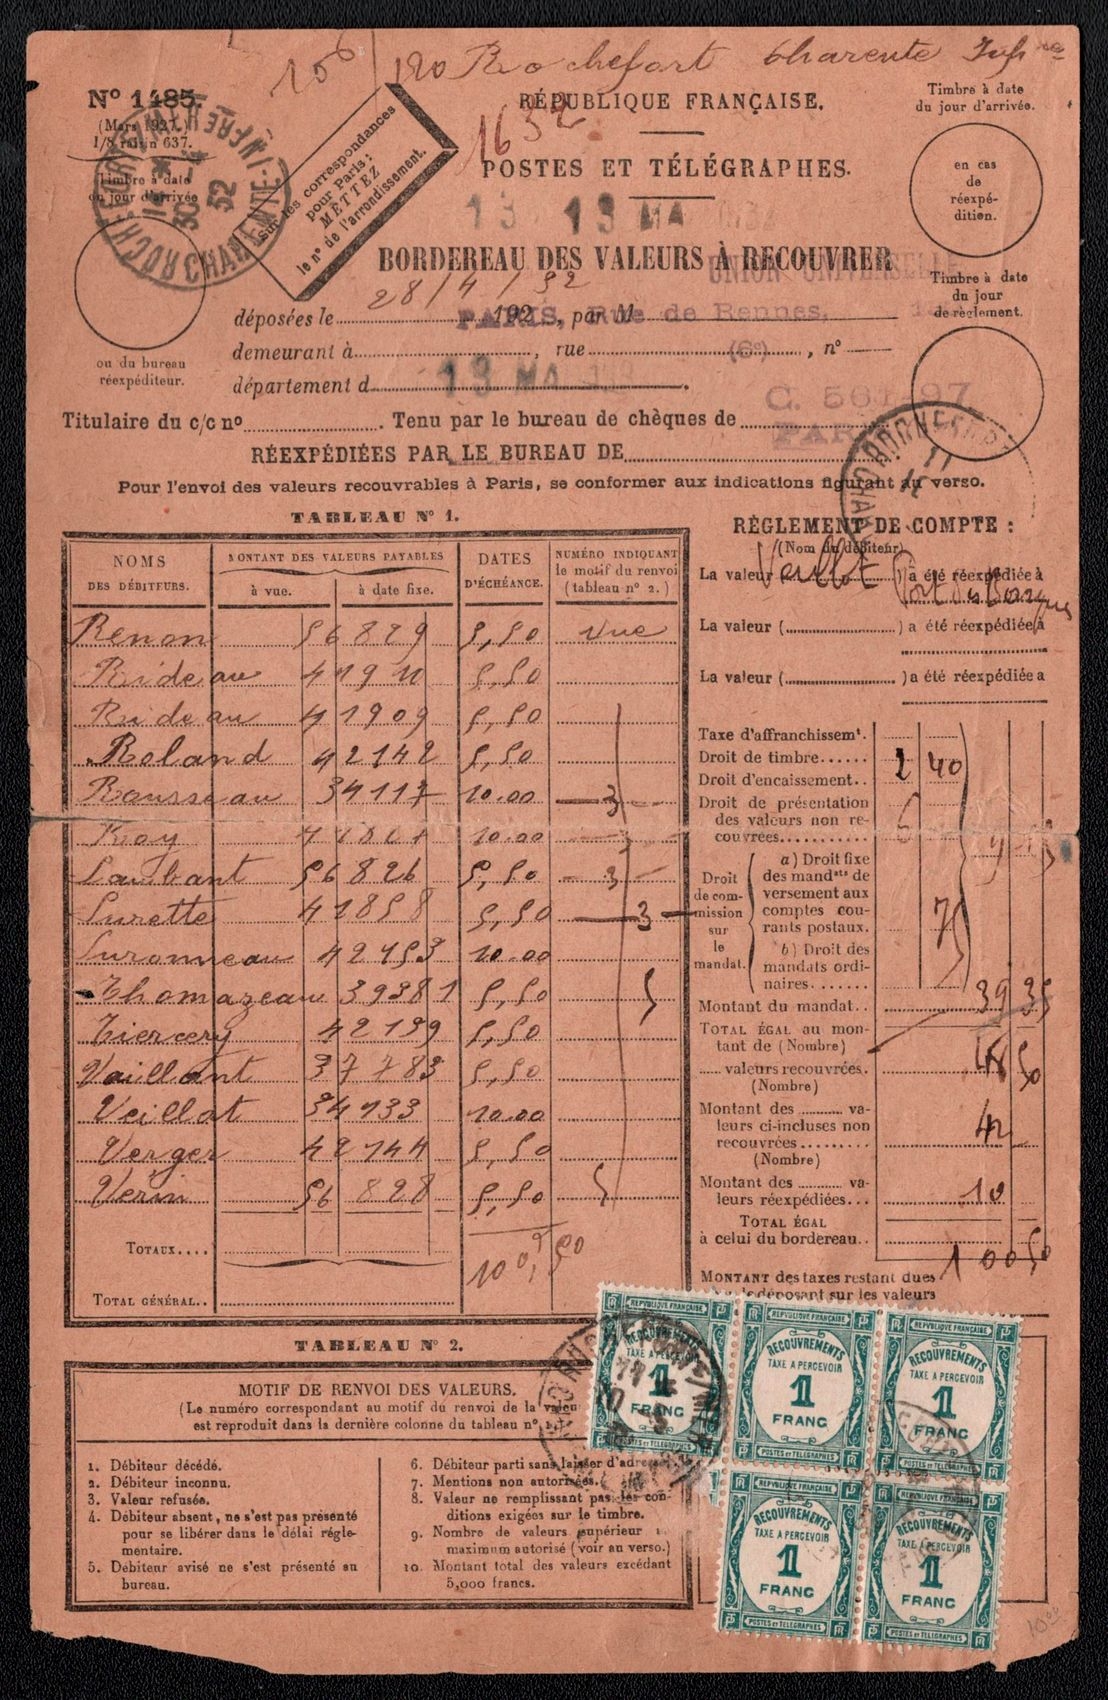 120 Rochefort Charente Infre
1632
Nº 1485.
(Mars 1927.)
1/8 raisin 637.
Timbre à date
du jour d'arrivée
ou du bureau
réexpéditeur.
Sur les correspondances
pour Paris :
METTEZ
le nº de l'arrondissement.
RÉPUBLIQUE FRANÇAISE.
POSTES ET TÉLÉGRAPHES.
13 13 MA
BORDEREAU DES VALEURS À RECOUVRER
UNION UNIVERSELLE
déposées le 28/4/32 192 , par M
PARIS, Rue de Rennes,
demeurant à , rue , nº
(6e)
département d .
13 MA
Titulaire du c/c nº . Tenu par le bureau de chèques de
RÉEXPÉDIÉES PAR LE BUREAU DE
Pour l'envoi des valeurs recouvrables à Paris, se conformer aux indications figurant au verso.
Timbre à date
du jour d'arrivée.
en cas
de
réexpé-
dition.
Timbre à date
du jour
de règlement.
TABLEAU Nº 1.
NOMS
DES DÉBITEURS.
MONTANT DES VALEURS PAYABLES
à vue.
à date fixe.
DATES
D'ÉCHÉANCE.
NUMÉRO INDIQUANT
le motif du renvoi
(tableau nº 2.)
Renon 56829 5,50 vue
Rideau 41910 5,50
Rideau 41909 5,50
Roland 42142 5,50
Rousseau 34117 10.00 3
Roy 10.00
Saubant 56826 5,50 3
Surette 41858 5,50 3
Suronneau 42153 10.00
Thomazeau 39381 5,50 5
Tiercery 42139 5,50
Vaillant 37783 5,50
Veillat 34933 10.00
Verger 42144 5,50
Verin 56828 5,50 5
TOTAUX....
100,50
TOTAL GÉNÉRAL..
RÈGLEMENT DE COMPTE :
(Nom du débiteur)
La valeur Veillot a été réexpédiée à
La valeur ( ) a été réexpédiée à
La valeur ( ) a été réexpédiée à
Taxe d'affranchissemt.
Droit de timbre...... 2 40
Droit d'encaissement..
Droit de présentation
des valeurs non re-
couvrées..........
Droit
de com-
mission
sur
le
mandat.
a) Droit fixe
des mandats de
versement aux
comptes cou-
rants postaux.
b) Droit des
mandats ordi-
naires.....
75
Montant du mandat.. 39 35
TOTAL ÉGAL au mon-
tant de (Nombre)
valeurs recouvrées. 48 50
(Nombre)
Montant des va-
leurs ci-incluses non
recouvrées......... 42
(Nombre)
Montant des va-
leurs réexpédiées... 10
TOTAL ÉGAL
à celui du bordereau.. 100 50
MONTANT des taxes restant dues
déposant sur les valeurs
TABLEAU Nº 2.
MOTIF DE RENVOI DES VALEURS.
(Le numéro correspondant au motif du renvoi de la valeur
est reproduit dans la dernière colonne du tableau nº 1.)
1. Débiteur décédé.
2. Débiteur inconnu.
3. Valeur refusée.
4. Débiteur absent, ne s'est pas présenté
pour se libérer dans le délai régle-
mentaire.
5. Débiteur avisé ne s'est présenté au
bureau.
6. Débiteur parti sans laisser d'adresse
7. Mentions non autorisées.
8. Valeur ne remplissant pas les con-
ditions exigées sur le timbre.
9. Nombre de valeurs supérieur
maximum autorisé (voir au verso.)
10. Montant total des valeurs excédant
5,000 francs.
REPUBLIQUE FRANÇAISE
RECOUVREMENTS
TAXE A PERCEVOIR
1
FRANC
POSTES ET TELEGRAPHES
REPUBLIQUE FRANÇAISE
RECOUVREMENTS
TAXE A PERCEVOIR
1
FRANC
POSTES ET TELEGRAPHES
REPUBLIQUE FRANÇAISE
RECOUVREMENTS
TAXE A PERCEVOIR
1
FRANC
POSTES ET TELEGRAPHES
REPUBLIQUE FRANÇAISE
RECOUVREMENTS
TAXE A PERCEVOIR
1
FRANC
POSTES ET TELEGRAPHES
REPUBLIQUE FRANÇAISE
RECOUVREMENTS
TAXE A PERCEVOIR
1
FRANC
POSTES ET TELEGRAPHES